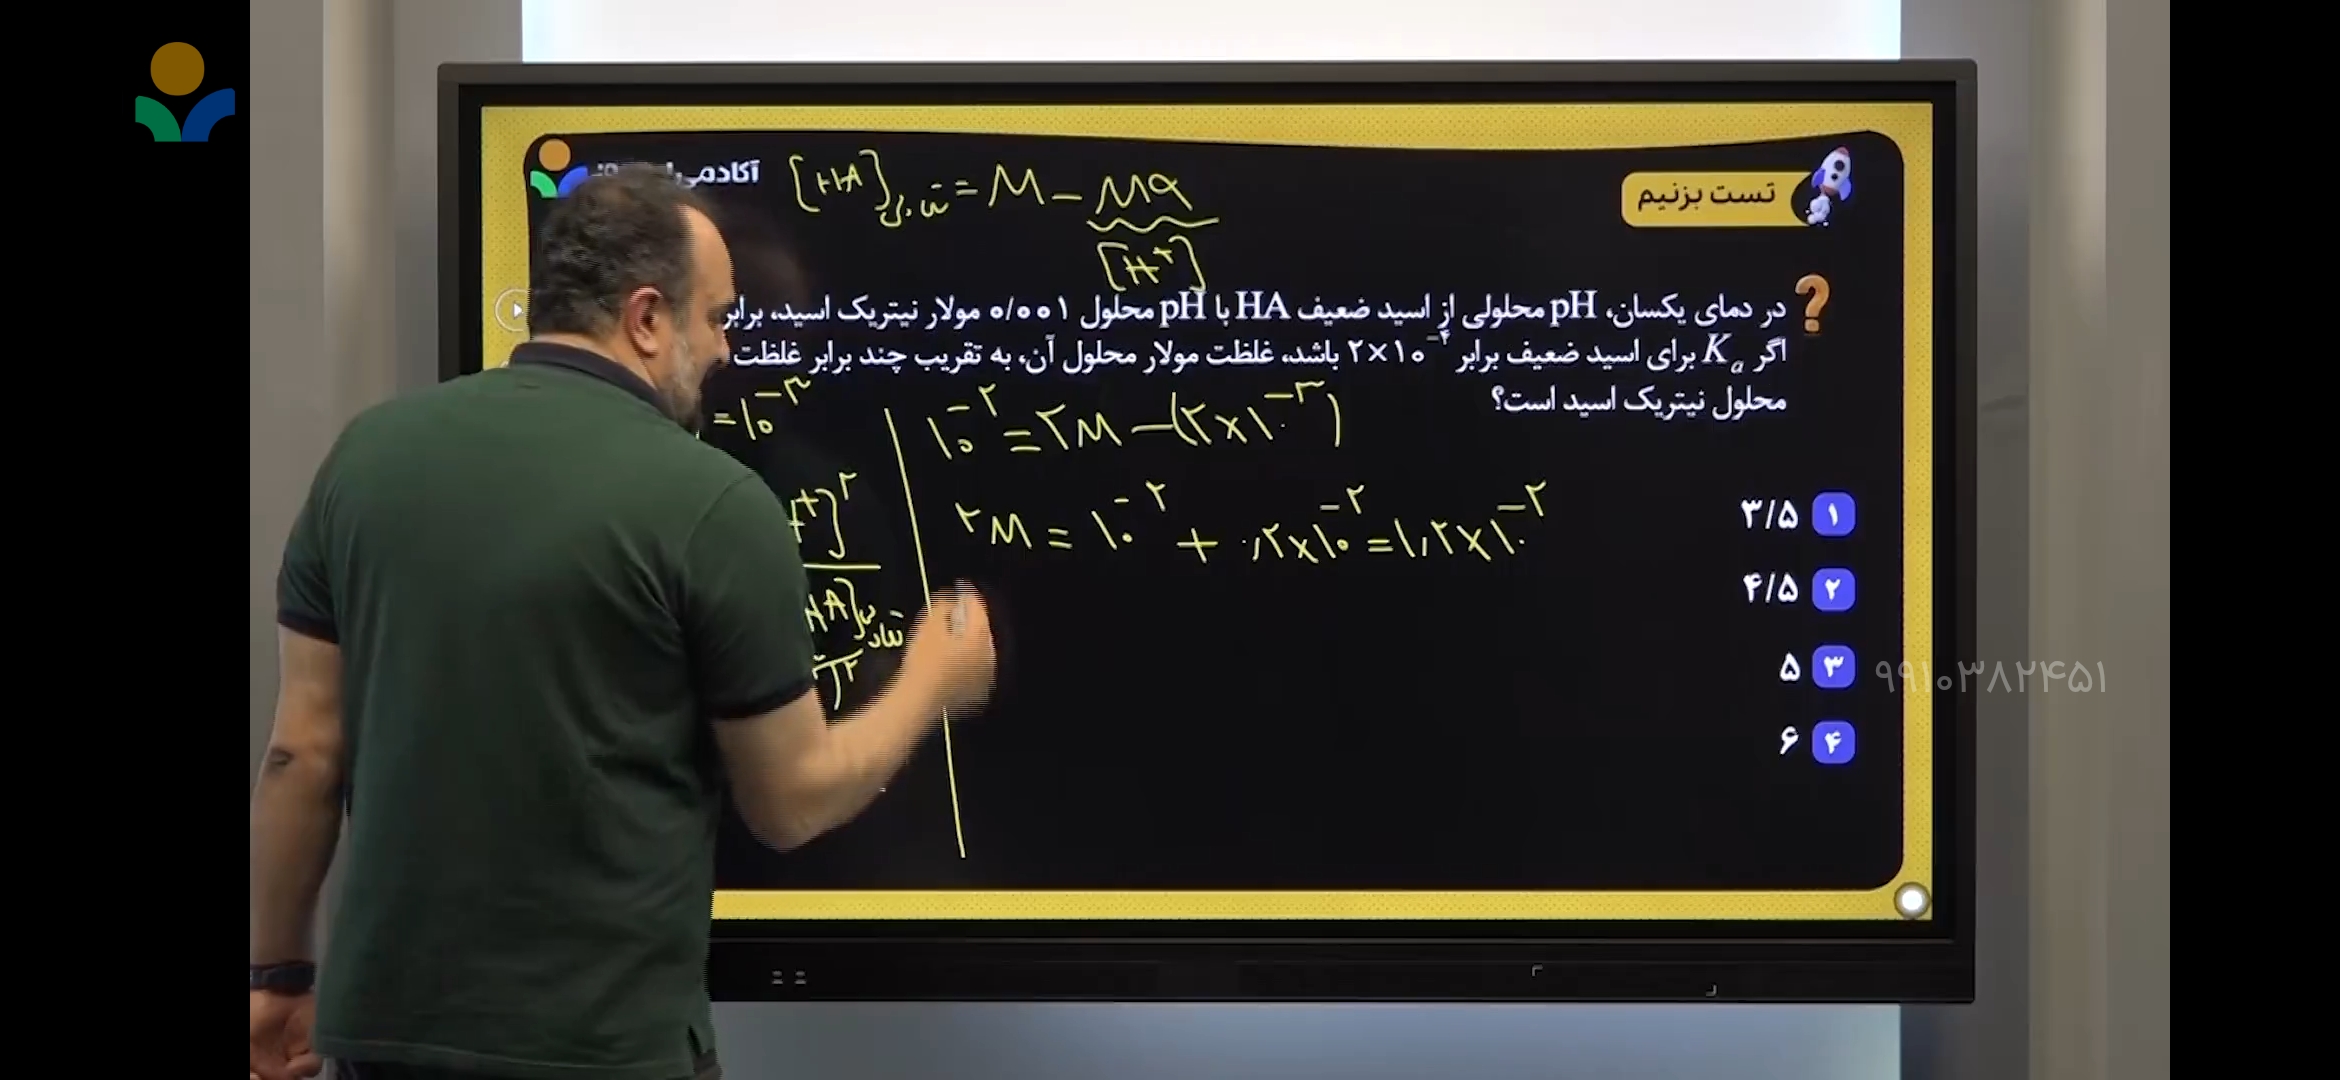 آکادمی
تست بزنیم
[HA] = M - Mα
[H⁺]
در دمای یکسان، pH محلولی از اسید ضعیف HA با pH محلول ۰/۰۰۱ مولار نیتریک اسید، برابر
اگر Kₐ برای اسید ضعیف برابر ۲×۱۰⁻⁴ باشد، غلظت مولار محلول آن، به تقریب چند برابر غلظت
محلول نیتریک اسید است؟
= ۱۰⁻³
۱۰⁻² = ۲M - (۲×۱۰⁻³)
۲M = ۱۰⁻² + ۰,۲×۱۰⁻² = ۱,۲×۱۰⁻²
۱ ۳/۵
۲ ۴/۵
۳ ۵
۴ ۶
۹۹۱۰۳۸۲۴۵۱